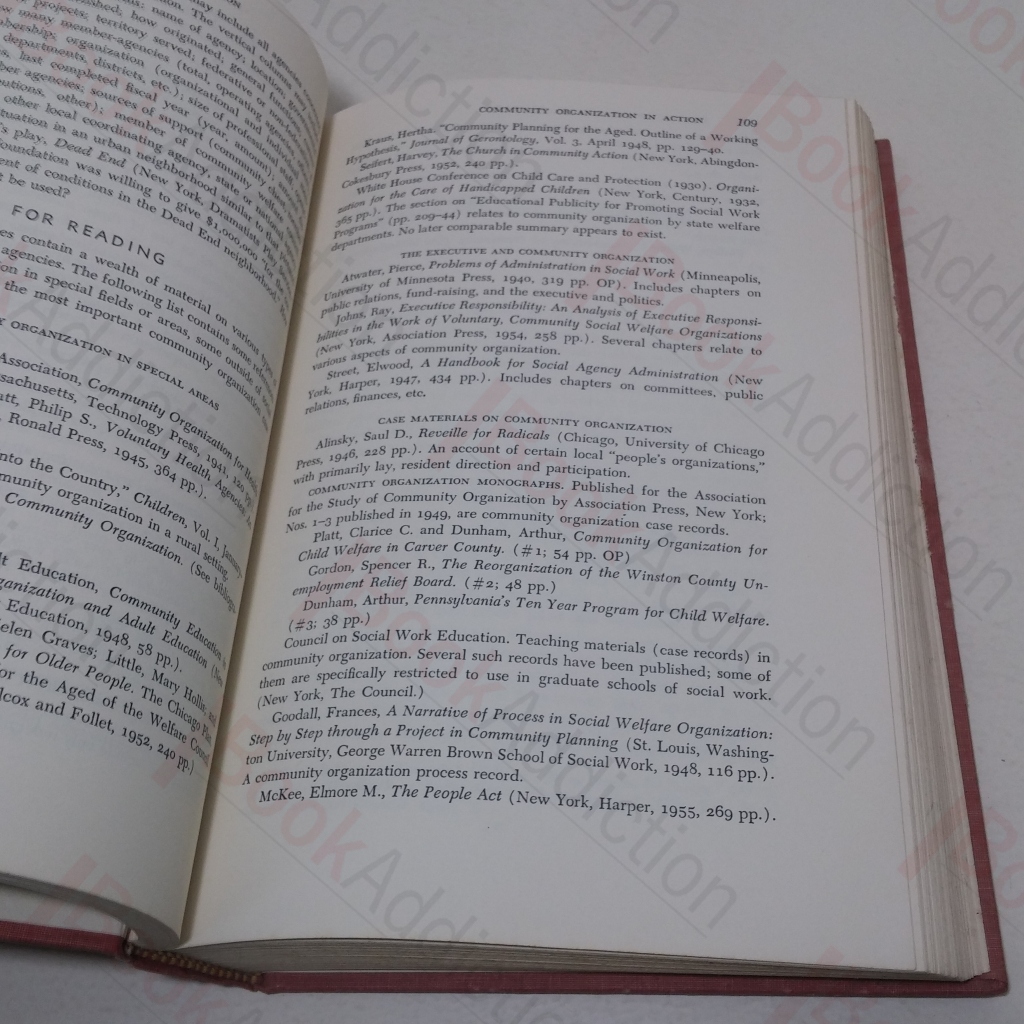 may include
column
The vertical
all agencies
name of agency; location, governmental
how originated; general function
projects; territory served; federative or non-federative
many member-agencies (total, operating
organization (organizational
departments, districts, etc.); size of professional staff
last completed fiscal year (year, amount)
agencies; sources of support (community chest
other); member of community welfare council
other local coordinating agency, state or national
situation in an urban neighborhood similar to that
play, Dead End (New York, Dramatists Play
foundation was willing to give $1,000,000 for the
of conditions in the Dead End neighborhood."
be used?
FOR READING
contain a wealth of material on various
agencies. The following list contains some
in special fields or areas, some outside of
the most important community organization
ORGANIZATION IN SPECIAL AREAS
Association, Community Organization for Health
Massachusetts, Technology Press, 1941, 120 pp.
Philip S., Voluntary Health Agencies
Ronald Press, 1945, 364 pp.).
into the Country," Children, Vol. I, January-
community organization in a rural setting.
Community Organization. (See
Education, Community Education
Organization and Adult Education (New
Education, 1948, 58 pp.).
Helen Graves; Little, Mary Hollis;
for Older People. The Chicago Plan
for the Aged of the Welfare Council
Wilcox and Follet, 1952, 240 pp.)
COMMUNITY ORGANIZATION IN ACTION 109
Kraus, Hertha. "Community Planning for the Aged. Outline of a Working
Hypothesis," Journal of Gerontology, Vol. 3, April 1948, pp. 129-40.
Seifert, Harvey, The Church in Community Action (New York, Abingdon-
Cokesbury Press, 1952, 240 pp.).
White House Conference on Child Care and Protection (1930). Organi-
zation for the Care of Handicapped Children (New York, Century, 1932,
365 pp.). The section on "Educational Publicity for Promoting Social Work
Programs" (pp. 209-44) relates to community organization by state welfare
departments. No later comparable summary appears to exist.
THE EXECUTIVE AND COMMUNITY ORGANIZATION
Atwater, Pierce, Problems of Administration in Social Work (Minneapolis,
University of Minnesota Press, 1940, 319 pp. OP). Includes chapters on
public relations, fund-raising, and the executive and politics.
Johns, Ray, Executive Responsibility: An Analysis of Executive Responsi-
bilities in the Work of Voluntary, Community Social Welfare Organizations
(New York, Association Press, 1954, 258 pp.). Several chapters relate to
various aspects of community organization.
Street, Elwood, A Handbook for Social Agency Administration (New
York, Harper, 1947, 434 pp.). Includes chapters on committees, public
relations, finances, etc.
CASE MATERIALS ON COMMUNITY ORGANIZATION
Alinsky, Saul D., Reveille for Radicals (Chicago, University of Chicago
Press, 1946, 228 pp.). An account of certain local "people's organizations,"
with primarily lay, resident direction and participation.
COMMUNITY ORGANIZATION MONOGRAPHS. Published for the Association
for the Study of Community Organization by Association Press, New York;
Nos. 1-3 published in 1949, are community organization case records.
Platt, Clarice C. and Dunham, Arthur, Community Organization for
Child Welfare in Carver County. (#1; 54 pp. OP)
Gordon, Spencer R., The Reorganization of the Winston County Un-
employment Relief Board. (#2; 48 pp.)
Dunham, Arthur, Pennsylvania's Ten Year Program for Child Welfare.
(#3; 38 pp.)
Council on Social Work Education. Teaching materials (case records) in
community organization. Several such records have been published; some of
them are specifically restricted to use in graduate schools of social work.
(New York, The Council.)
Goodall, Frances, A Narrative of Process in Social Welfare Organization:
Step by Step through a Project in Community Planning (St. Louis, Washing-
ton University, George Warren Brown School of Social Work, 1948, 116 pp.).
A community organization process record.
McKee, Elmore M., The People Act (New York, Harper, 1955, 269 pp.).
BookAddiction